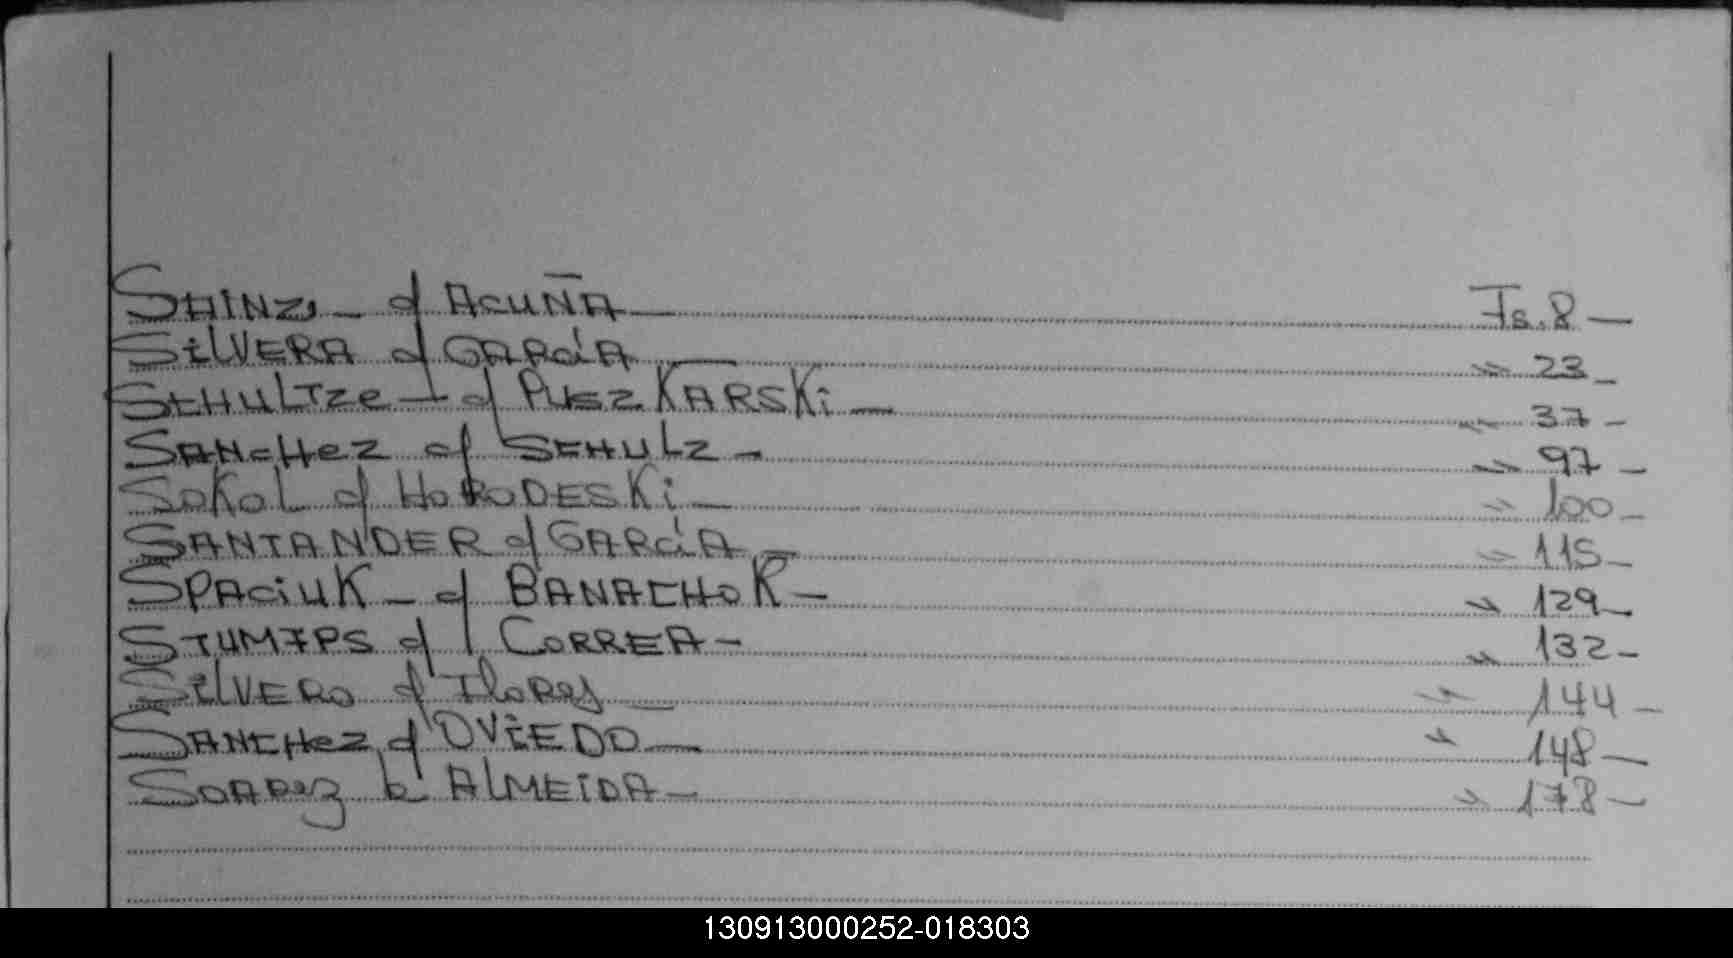 SAINZ, - d ACUÑA - Fs. 8 -
SilVERA d GARCÍA - " 23 -
SCHULTZE - d PUSZKARSKi - " 37 -
SANCHEZ d SCHULZ - " 97 -
SOKOL d HORODESKi - " 100 -
SANTANDER d GARCÍA - " 115 -
SPACiUK - d BANACHOK - " 129 -
d CORREA - " 132 -
SilVERO d Flores - " 144 -
SANCHEZ d OViEDO - " 148 -
SOAREZ d ALMEIDA - " 178 -
130913000252-018303